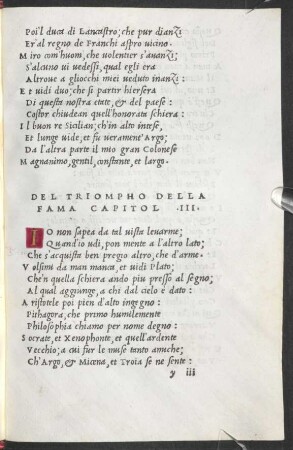 Poi'l duca di Lancastro; che pur dianzi
Er'al regno de Franchi aspro uicino.
Miro com'huom, che uolentier s'auanzi;
S'alcuno ui uedessi, qual egli era
Altroue a gliocchi miei ueduto inanzi:
Et uidi duo; che si partir hiersera
Di questa nostra etate, & del paese:
Costor chiudean quell'honorata schiera:
Il buon re Sicilian; ch'in alto intese,
Et lunge uide, et fu ueramente Argo;
Da l'altra parte il mio gran Colonese
Magnanimo, gentil, constante, et largo.
DEL TRIOMPHO DELLA
FAMA CAPITOL .III.
IO non sapea da tal uista leuarme;
Quand'io udi, pon mente a l'altro lato;
Che s'acquista ben pregio altro, che d'arme.
Volsimi da man manca, et uidi Plato;
Che'n quella schiera ando piu presso al segno;
Al qual aggiunge, a chi dal cielo è dato:
Aristotele poi pien d'alto ingegno:
Pithagora, che primo humilemente
Philosophia chiamo per nome degno:
Socrate, et Xenophonte, et quell'ardente
Vecchio; a cui fur le muse tanto amiche;
Ch'Argo, & Micena, et Troia se ne sente:
y iii